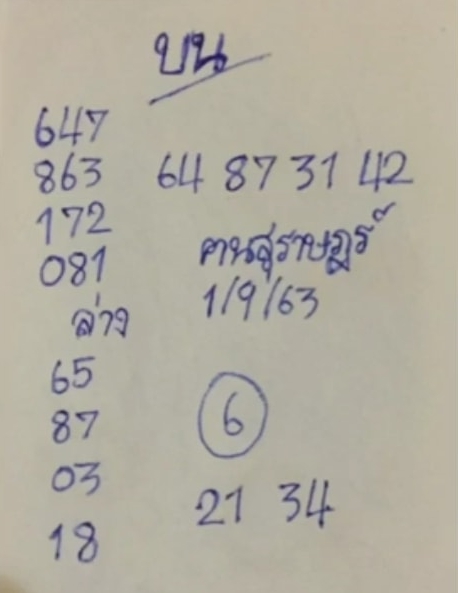 บน
647
863 64 87 31 42
172
081 คนสุราษฎร์
ล่าง 1/9/63
65
87 6
03
21 34
18